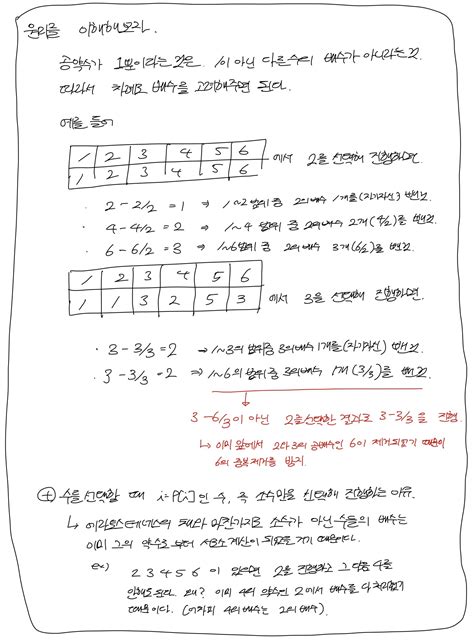 원리를 이해해보자.
공약수가 1뿐이라는 것은 1이 아닌 다른수의 배수가 아니라는것
따라서 차례로 배수를 고려해주면 된다.
예를 들어
1 2 3 4 5 6
1 2 3 4 5 6 에서 2를 선택해 진행하면
· 2 - 2/2 = 1 ⇒ 1~2 범위 중 2의배수 1개를(자기자신) 뺀것
· 4 - 4/2 = 2 ⇒ 1~4 범위 중 2의배수 2개(4/2)를 뺀것
· 6 - 6/2 = 3 ⇒ 1~6범위 중 2의배수 3개(6/2)를 뺀것
1 2 3 4 5 6
1 1 3 2 5 3 에서 3을 선택해 진행하면
· 3 - 3/3 = 2 → 1~3의 범위중 3의배수 1개를(자기자신) 뺀것
· 3 - 3/3 = 2 ⇒ 1~6의 범위중 3의배수 1개(3/3)를 뺀것
3 - 6/3이 아닌 2를선택한 결과로 3-3/3을 진행
↳ 이미 앞에서 2와3의 공배수인 6이 제거되었기 때문에
6의 중복제거를 방지
+ 수를 선택할 때 i=P[i]인 수, 즉 소수만을 선택해 진행하는 이유
↳ 에라토스테네스의 체와 마찬가지로 소수가 아닌 수들의 배수는
이미 그의 약수로부터 서로소 계산이 되었을 것이기 때문이다.
ex) 2 3 4 5 6 이 있다면 2를 진행하고 그 다음 4를
안해도된다. 왜? 이미 4의 약수인 2에서 배수를 다 처리했기
때문이다. (어차피 4의배수는 2의배수)